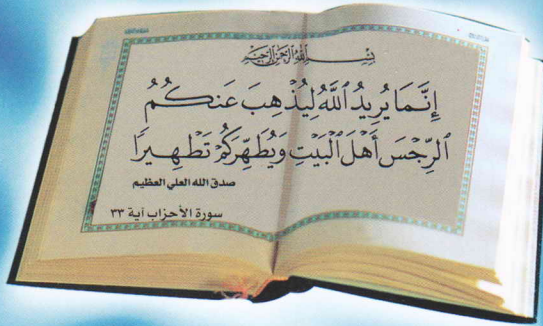 بِسْمِ اللَّهِ الرَّحْمَنِ الرَّحِيمِ
إِنَّمَا يُرِيدُ اللَّهُ لِيُذْهِبَ عَنكُمُ
الرِّجْسَ أَهْلَ الْبَيْتِ وَيُطَهِّرَكُمْ تَطْهِيرًا
صدق الله العلي العظيم
سورة الأحزاب آية ٣٣